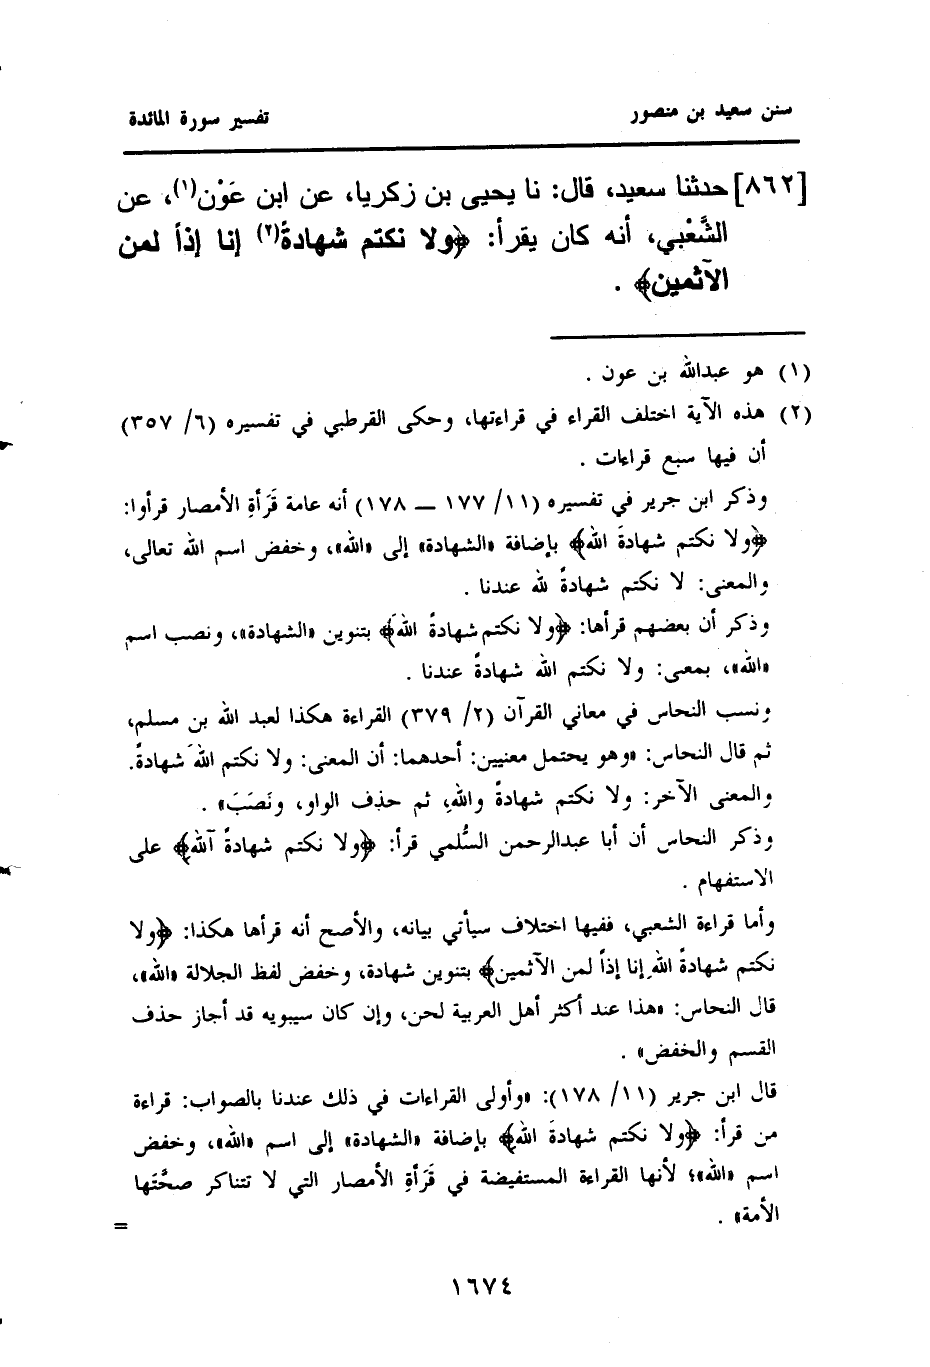 سنن سعيد بن منصور
تفسير سورة المائدة
[٨٦٢] حدثنا سعيد، قال: نا يحيى بن زكريا، عن ابن عَوْن(١)، عن
الشَّعْبي، أنه كان يقرأ: ﴿ولا نكتم شهادةً(٢) إنا إذاً لمن
الآثمين﴾ .
(١) هو عبدالله بن عون .
(٢) هذه الآية اختلف القراء في قراءتها، وحكى القرطبي في تفسيره (٦/ ٣٥٧)
أن فيها سبع قراءات .
وذكر ابن جرير في تفسيره (١١/ ١٧٧ ــ ١٧٨) أنه عامة قَرَأةِ الأمصار قرأوا:
﴿ولا نكتم شهادةَ الله﴾ بإضافة «الشهادة» إلى «الله»، وخفض اسم الله تعالى،
والمعنى: لا نكتم شهادةً لله عندنا .
وذكر أن بعضهم قرأها: ﴿ولا نكتم شهادةً اللهَ﴾ بتنوين «الشهادة»، ونصب اسم
«الله»، بمعى: ولا نكتم الله شهادةً عندنا .
ونسب النحاس في معاني القرآن (٢/ ٣٧٩) القراءة هكذا لعبد الله بن مسلم،
ثم قال النحاس: «وهو يحتمل معنيين: أحدهما: أن المعنى: ولا نكتم اللهَ شهادةً.
والمعنى الآخر: ولا نكتم شهادةً واللهِ، ثم حذف الواو، ونَصَبَ» .
وذكر النحاس أن أبا عبدالرحمن السُّلمي قرأ: ﴿ولا نكتم شهادةً آلله﴾ على
الاستفهام .
وأما قراءة الشعبي، ففيها اختلاف سيأتي بيانه، والأصح أنه قرأها هكذا: ﴿ولا
نكتم شهادةً اللهِ إنا إذاً لمن الآثمين﴾ بتنوين شهادة، وخفض لفظ الجلالة «الله»،
قال النحاس: «هذا عند أكثر أهل العربية لحن، وإن كان سيبويه قد أجاز حذف
القسم والخفض» .
قال ابن جرير (١١/ ١٧٨): «وأولى القراءات في ذلك عندنا بالصواب: قراءة
من قرأ: ﴿ولا نكتم شهادةَ الله﴾ بإضافة «الشهادة» إلى اسم «الله»، وخفض
اسم «الله»؛ لأنها القراءة المستفيضة في قَرَأةِ الأمصار التي لا تتناكر صحَّتَها
الأمة» .
=
١٦٧٤